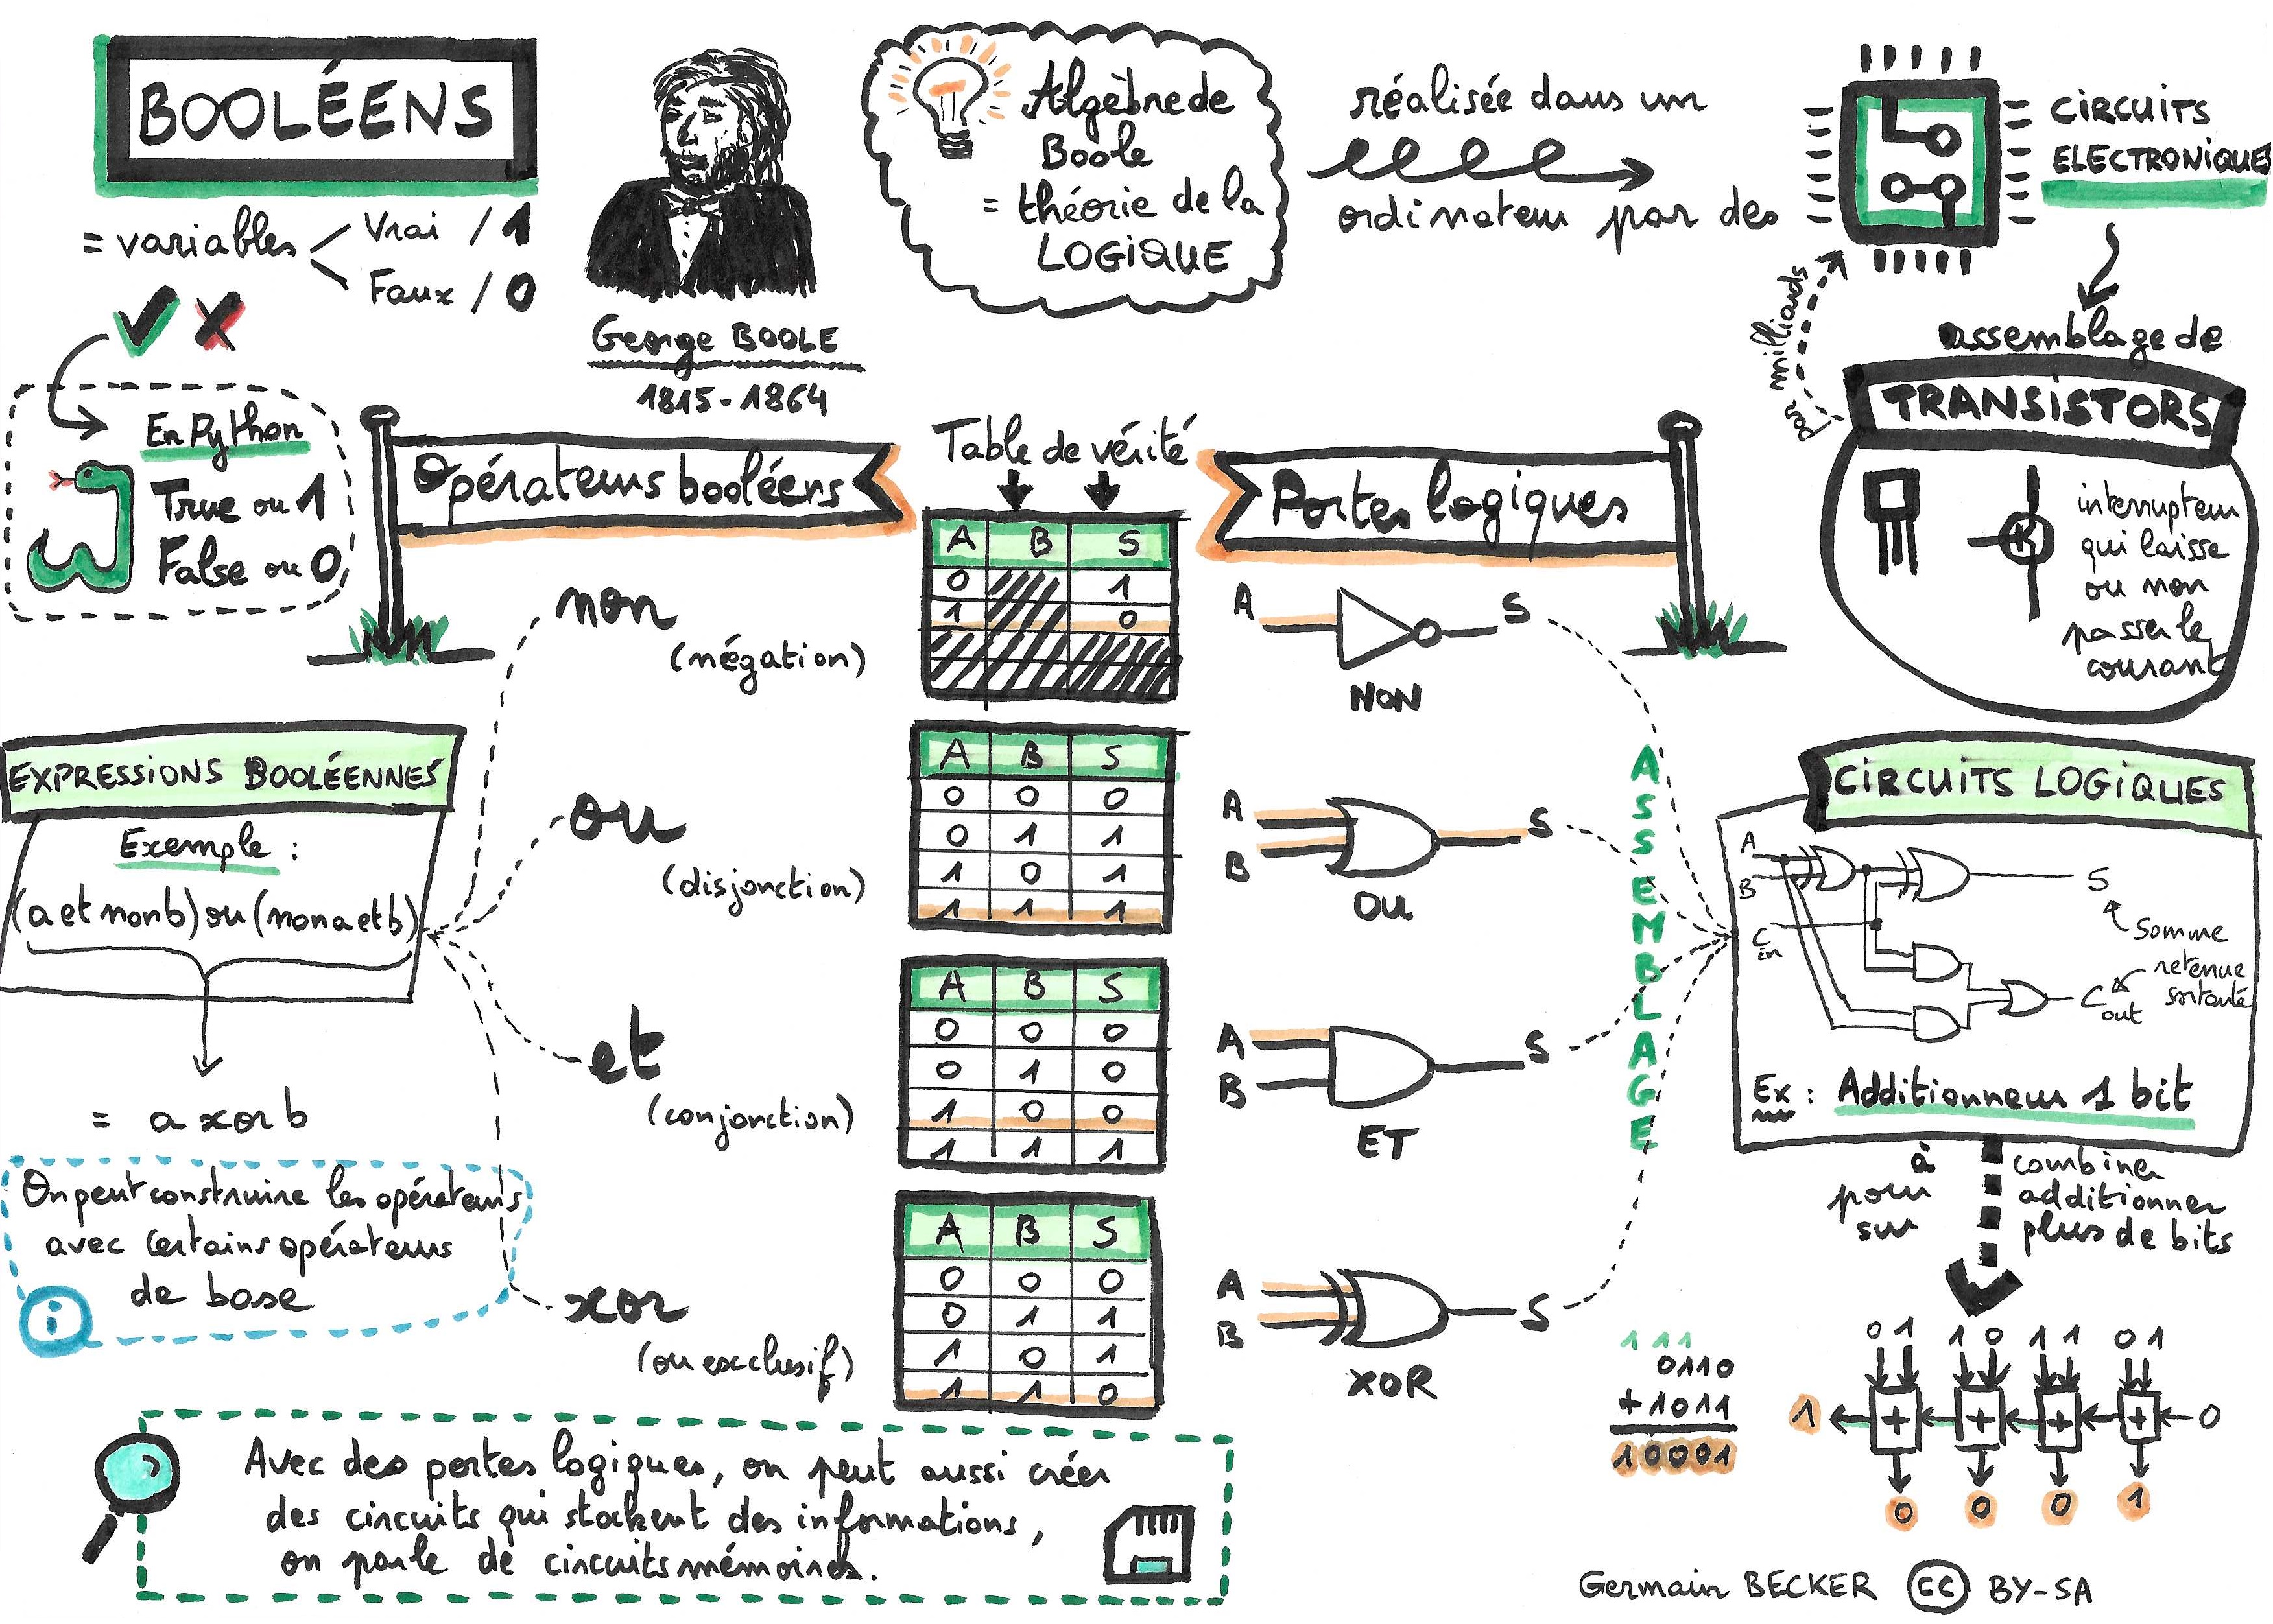 BOOLÉENS
= variables
Vrai / 1
Faux / 0
En Python
True ou 1
False ou 0
George BOOLE
1815-1864
Algèbre de
Boole
= théorie de la
LOGIQUE
réalisée dans un
ordinateur par des
CIRCUITS
ELECTRONIQUES
par milliards
assemblage de
TRANSISTORS
interrupteur
qui laisse
ou non
passer le
courant
Opérateurs booléens
Table de vérité
Portes logiques
non
(négation)
A B S
0 1
1 0
A S
NON
EXPRESSIONS BOOLÉENNES
Exemple :
(a et non b) ou (non a et b)
= a xor b
On peut construire les opérateurs
avec certains opérateurs
de base
i
ou
(disjonction)
A B S
0 0 0
0 1 1
1 0 1
1 1 1
A
B
S
OU
et
(conjonction)
A B S
0 0 0
0 1 0
1 0 0
1 1 1
A
B
S
ET
xor
(ou exclusif)
A B S
0 0 0
0 1 1
1 0 1
1 1 0
A
B
S
XOR
ASSEMBLAGE
CIRCUITS LOGIQUES
A
B
C in
S
Somme
retenue
sortante
C out
Ex : Additionneur 1 bit
à combiner
pour additionner
sur plus de bits
1 1 1
0110
+1011
10001
0 1 1 0 1 1 0 1
1 + + + + 0
0 0 0 1
Avec des portes logiques, on peut aussi créer
des circuits qui stockent des informations,
on parle de circuits mémoires.
Germain BECKER CC BY-SA